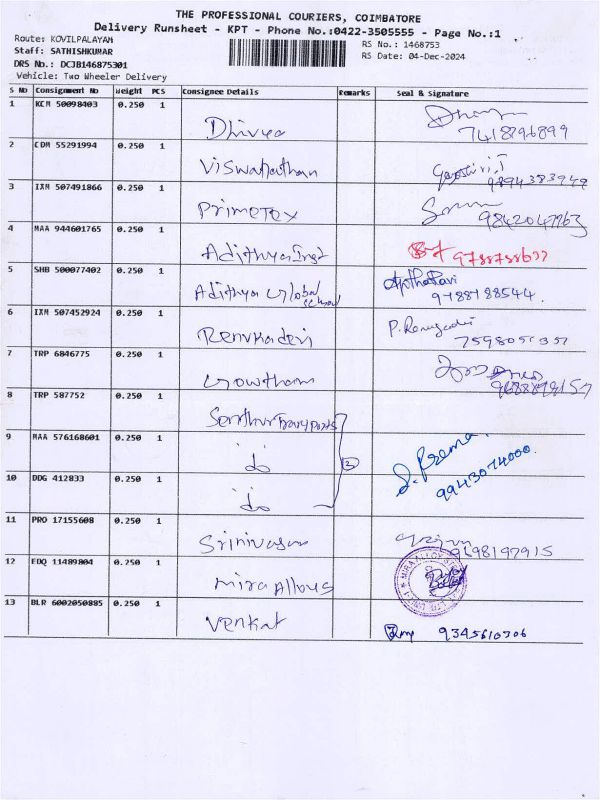 THE PROFESSIONAL COURIERS, COIMBATORE
Delivery Runsheet - KPT - Phone No.:0422-3505555 - Page No.:1
Route: KOVILPALAYAM
RS No.: 1468753
Staff: SATHISHKUMAR
RS Date: 04-Dec-2024
DRS No.: DCJB146875301
Vehicle: Two Wheeler Delivery
S No Consignment No Weight PCS Consignee Details Remarks Seal & Signature
1 KCM 50098403 0.250 1 Dhivya 7418796899
2 CDM 55291994 0.250 1 Viswanathan 9894383949
3 IXM 507491866 0.250 1 Primetex
4 MAA 944601765 0.250 1 Adithya Inst
5 SHB 500077402 0.250 1 Adithya Global School 9788788544
6 IXM 507452924 0.250 1 Renukadevi P. Renugadevi 7598051351
7 TRP 6846775 0.250 1 Gowtham
8 TRP 587752 0.250 1
9 MAA 576168601 0.250 1 do 3 S. Prema
10 DDG 412833 0.250 1 do 9943074000
11 PRO 17155608 0.250 1 Srinivasan 9698197915
12 EDQ 11489804 0.250 1 Mira Alloys
13 BLR 6002050885 0.250 1 Venkat 9345610306